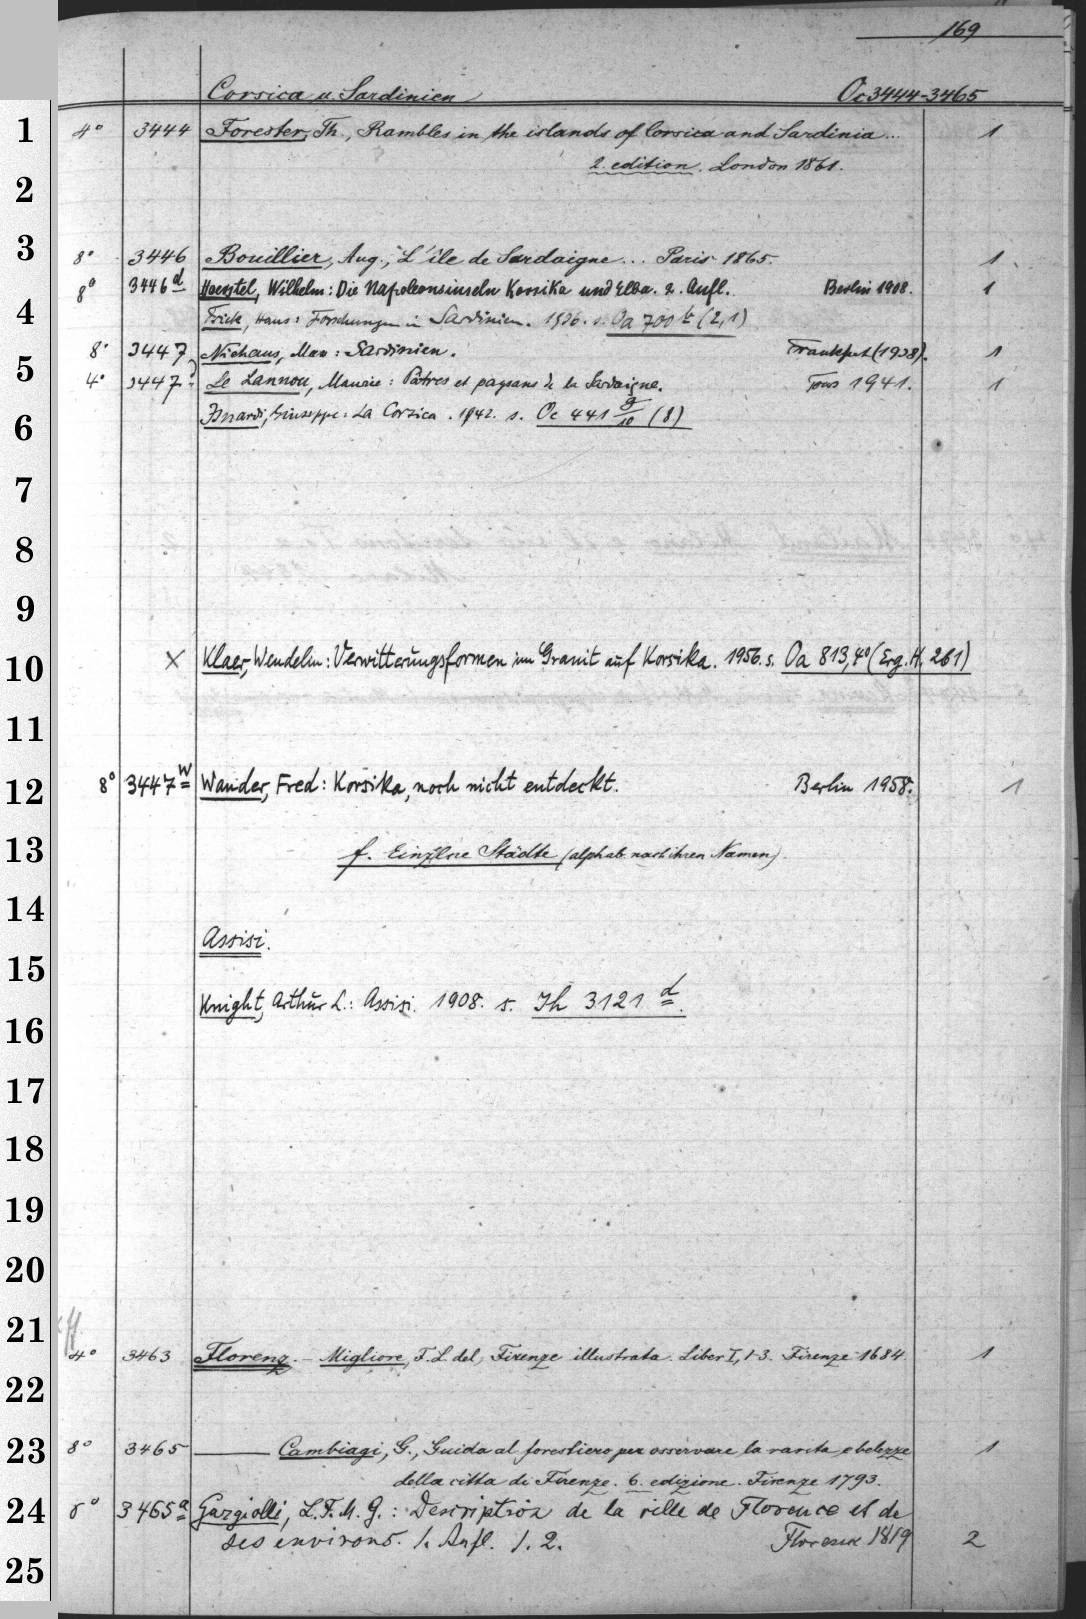 169
Corsica u. Sardinien Oc 3444-3465
1
4° 3444 Forester, Th., Rambles in the islands of Corsica and Sardinia... 1
2. edition. London 1861.
2
3
8° 3446 Bouillier, Aug., L'île de Sardaigne... Paris 1865. 1
8° 3446 d Hoerstel, Wilhelm: Die Napoleonsinseln Korsika und Elba. 2. Aufl. Berlin 1908. 1
4
Frick, Hans: Forschungen in Sardinien. 1936. s. Oa 700 k (2,1)
8° 3447 Niehaus, Max: Sardinien. Frankfurt (1938). 1
5
4° 3447 Le Lannou, Maurice: Pâtres et paysans de la Sardaigne. Tours 1941. 1
Isnardi, Giuseppe: La Corsica. 1942. s. Oc 441 g/10 (8)
6
7
8
9
10
× Klaer, Wendelin: Verwitterungsformen im Granit auf Korsika. 1956. s. Oa 813, 4° (Erg. H. 261)
11
12
8° 3447 w Wander, Fred: Korsika, noch nicht entdeckt. Berlin 1958. 1
13
f. Einzelne Städte (alphab. nach ihren Namen).
14
Assisi.
15
Knight, Arthur L.: Assisi. 1908. s. Jh 3121 d.
16
17
18
19
20
21
4° 3463 Florenz. — Migliore, F. L. del, Firenze illustrata. Liber I, 1-3. Firenze 1684 1
22
23
8° 3465 — Cambiagi, G., Guida al forestiero per osservare la rarita e belezze 1
della citta di Firenze. 6. edizione. Firenze 1793.
24
8° 3465 a Gargiolli, L.F.M.G.: Description de la ville de Florence et de
ses environs. 1. Aufl. 1. 2. Florence 1819 2
25